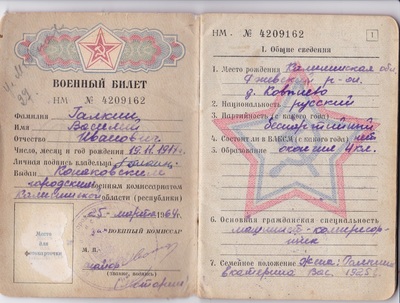 ВОЕННЫЙ БИЛЕТ
НМ № 4209162
Фамилия Галкин
Имя Василий
Отчество Иванович
Число, месяц и год рождения
Личная подпись владельца
Выдан Конаковским
городским военным комиссариатом
Калининской области (республики)
"25" марта 1964 г.
ВОЕННЫЙ КОМИССАР
М. П.
майор
(звание, подпись)
Место
для
фотокарточки
НМ № 4209162
1
I. Общие сведения
1. Место рождения Калининская обл.
р-он.
д.
2. Национальность русский
3. Партийность (с какого года)
беспартийный
4. Состоит ли в ВЛКСМ (с какого года) нет
5. Образование 4 кл.
6. Основная гражданская специальность
7. Семейное положение Жена: Галкина
Екатерина Вас. 1925 г.